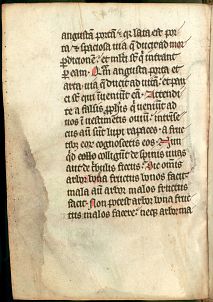 angusta porta & qr lata est por
ta & spaciosa uia q ducit ad mor
p dicionē. et mlti st q intrant
p eam. Qm angusta porta et
arta uia q ducit ad uitā. et pau
ci st qui īueniūt eā. Attendi
te a falsis pphis q ueniūt ad
uos ī uestimētis ouiū. intrīse
cus aūt sunt lupi rapaces. a fruc
tib; eor cognoscetis eos. Nūq
qd colligūt de spinis uuas
aut de tbulis ficus. Sic omnis
arbor bona fructus bonos facit.
mala aū arbor malos fructus
facit. Non potest arbor bona fruc
tus malos facere. neq; arbor ma